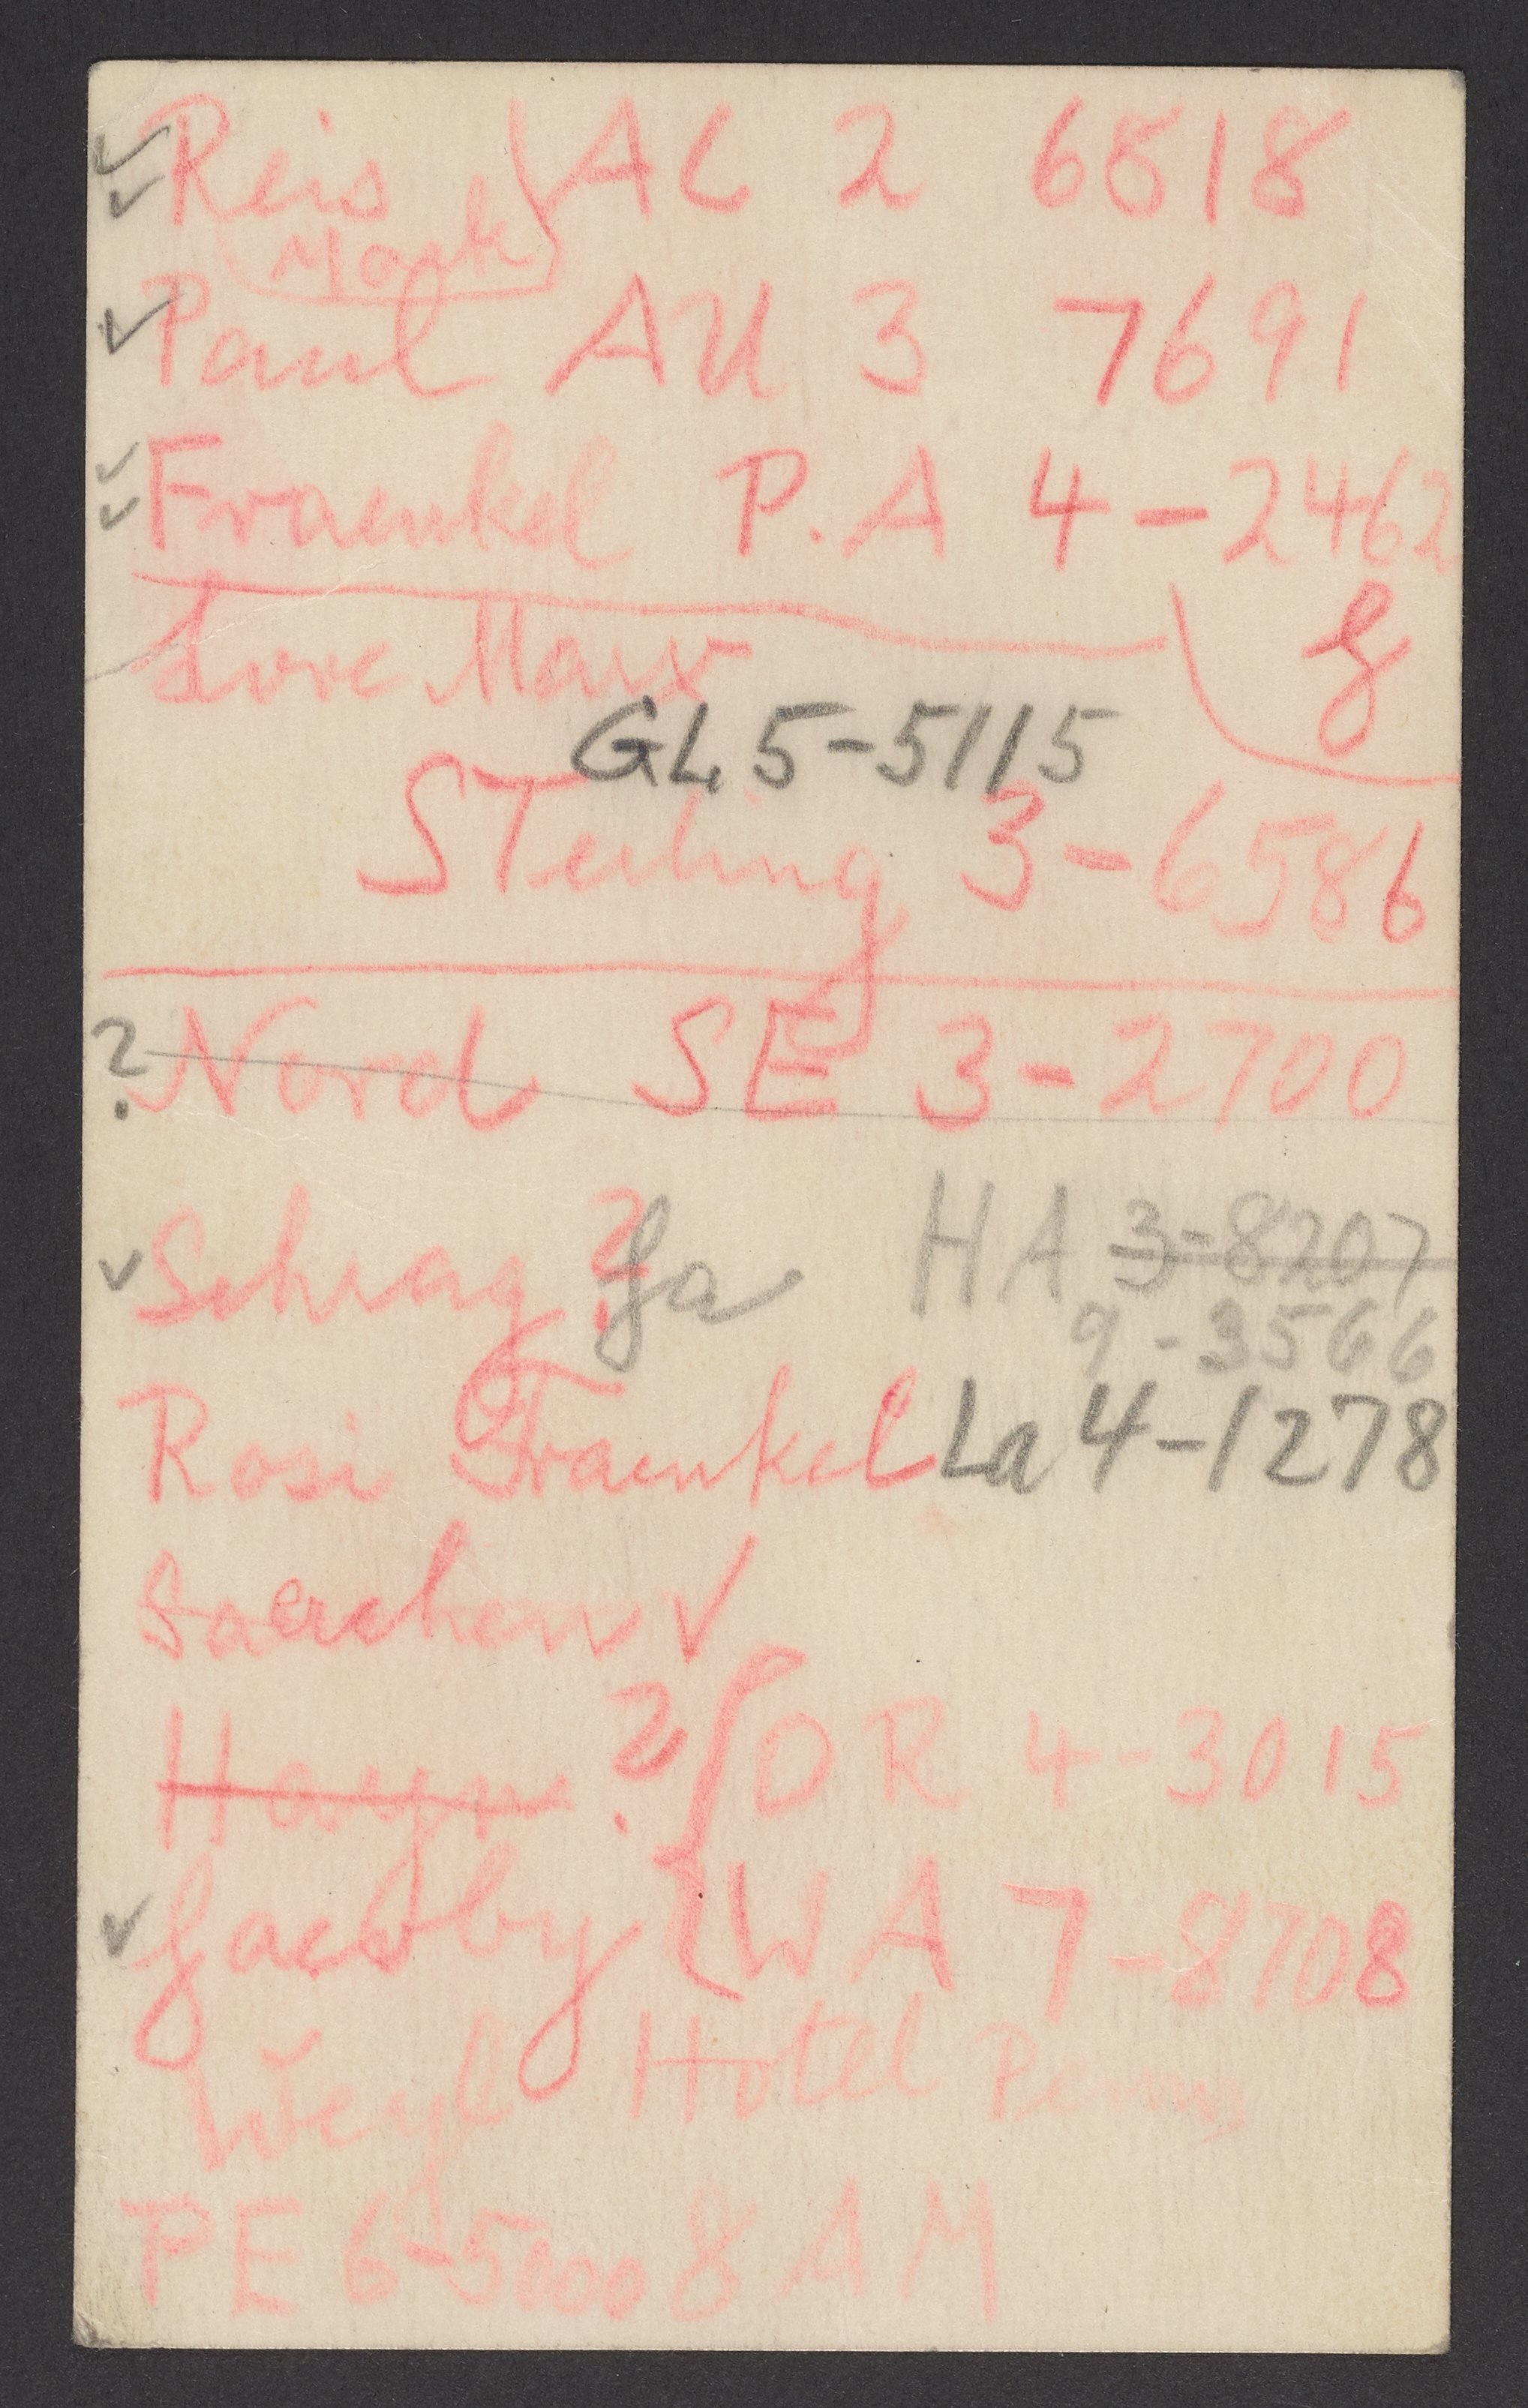 ✓✓ Reis AC 2 6818
(Mark)
✓ Paul AU 3 7691
✓✓ Fraenkel P.A 4-2462
Lore Marx
GL 5-5115
STerling 3-6586
? Nord SE 3-2700
✓ Schrag ? Ja HA 3-8207
9-3566
Rosi Fraenkel La 4-1278
✓
Hayn ? OR 4-3015
✓ Jacoby WA 7-8708
Weyl Hotel Penns
PE 6-5000 8 AM